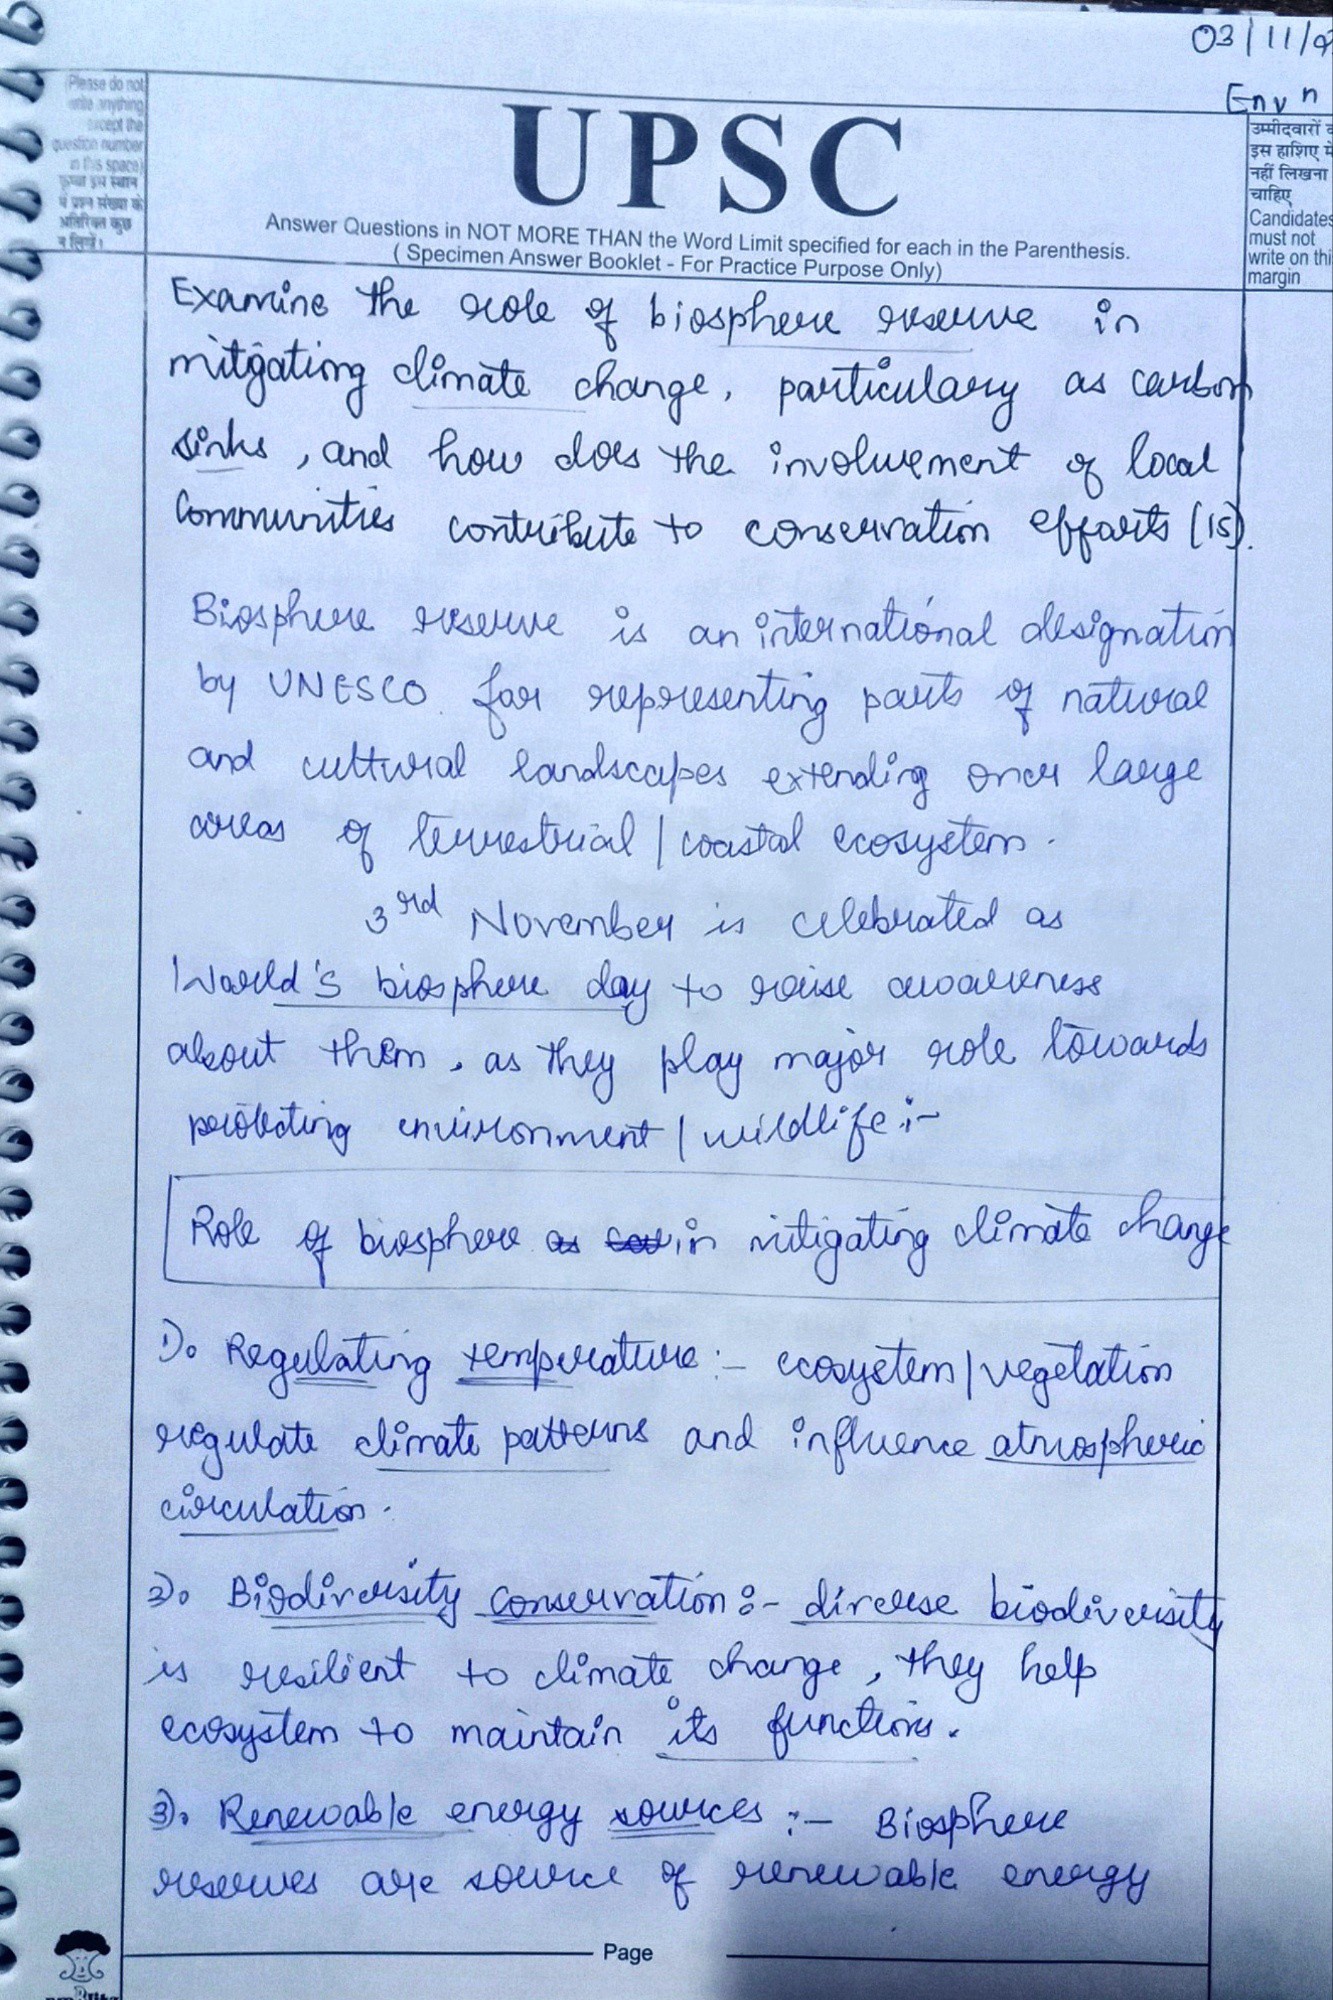 03/11/
Envn
(Please do not
write anything
except the
question number
in this space)
कृपया इस स्थान
में प्रश्न संख्या के
अतिरिक्त कुछ
न लिखें।
UPSC
Answer Questions in NOT MORE THAN the Word Limit specified for each in the Parenthesis.
( Specimen Answer Booklet - For Practice Purpose Only)
उम्मीदवारों
इस हाशिए में
नहीं लिखना
चाहिए
Candidates
must not
write on this
margin
Examine the role of biosphere reserve in
mitgating climate change, particulary as carbon
sinks, and how does the involvement of local
Communities contribute to conservation efforts (15).
Biosphere reserve is an international designation
by UNESCO for representing parts of natural
and cultural landscapes extending over large
areas of terrestrial / coastal ecosystem.
3rd November is celebrated as
World's biosphere day to raise awareness
about them, as they play major role towards
protecting environment / wildlife :-
Role of biosphere as in mitigating climate change
1). Regulating temperature :- ecosystem/vegetation
regulate climate patterns and influence atmospheric
circulation.
2). Biodiversity conservation :- diverse biodiversity
is resilient to climate change, they help
ecosystem to maintain its functions.
3). Renewable energy sources :- Biosphere
reserves are source of renewable energy
Page